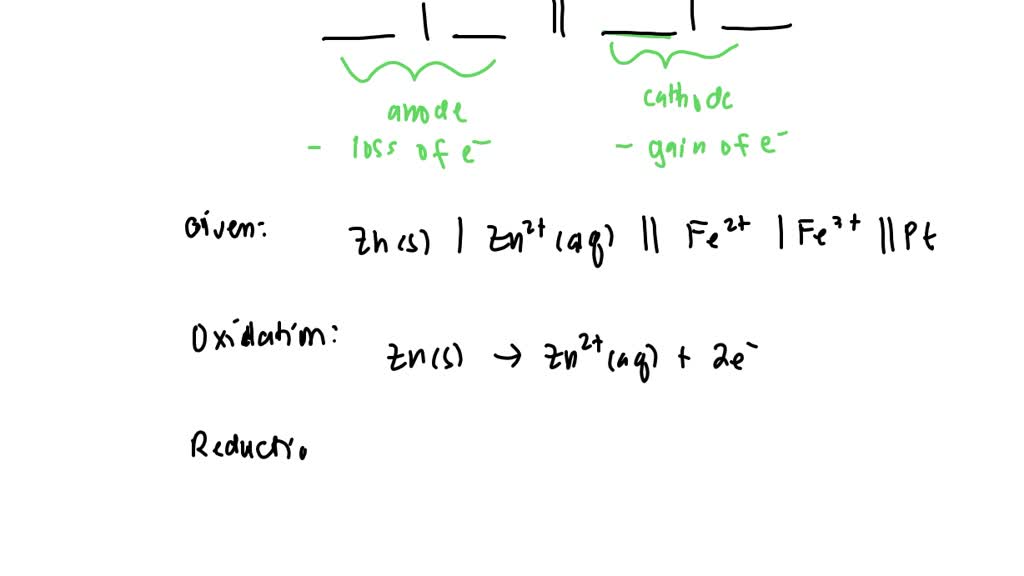 ___ | ___ || ___ | ___
anode cathode
- loss of e⁻ - gain of e⁻
Given: Zn(s) | Zn²⁺(aq) || Fe²⁺ | Fe³⁺ || Pt
Oxidation: Zn(s) → Zn²⁺(aq) + 2e⁻
Reductio